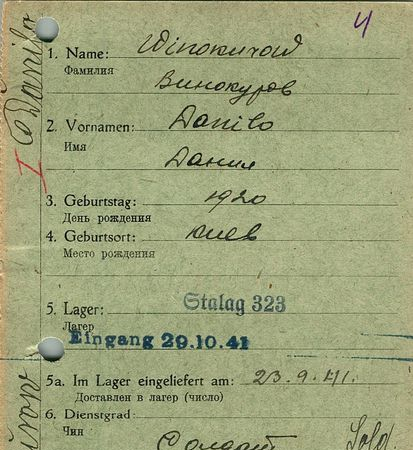 4
1. Name: Winokurow
Фамилия
Винокуров
2. Vornamen: Danilo
Имя
Данил
3. Geburtstag: 1920
День рождения
4. Geburtsort: Киев
Место рождения
5. Lager: Stalag 323
Лагер
Eingang 29.10.41
5a. Im Lager eingeliefert am: 23.9.41.
Доставлен в лагер (число)
6. Dienstgrad:
Чин
Солдат Sold.
I Danilo